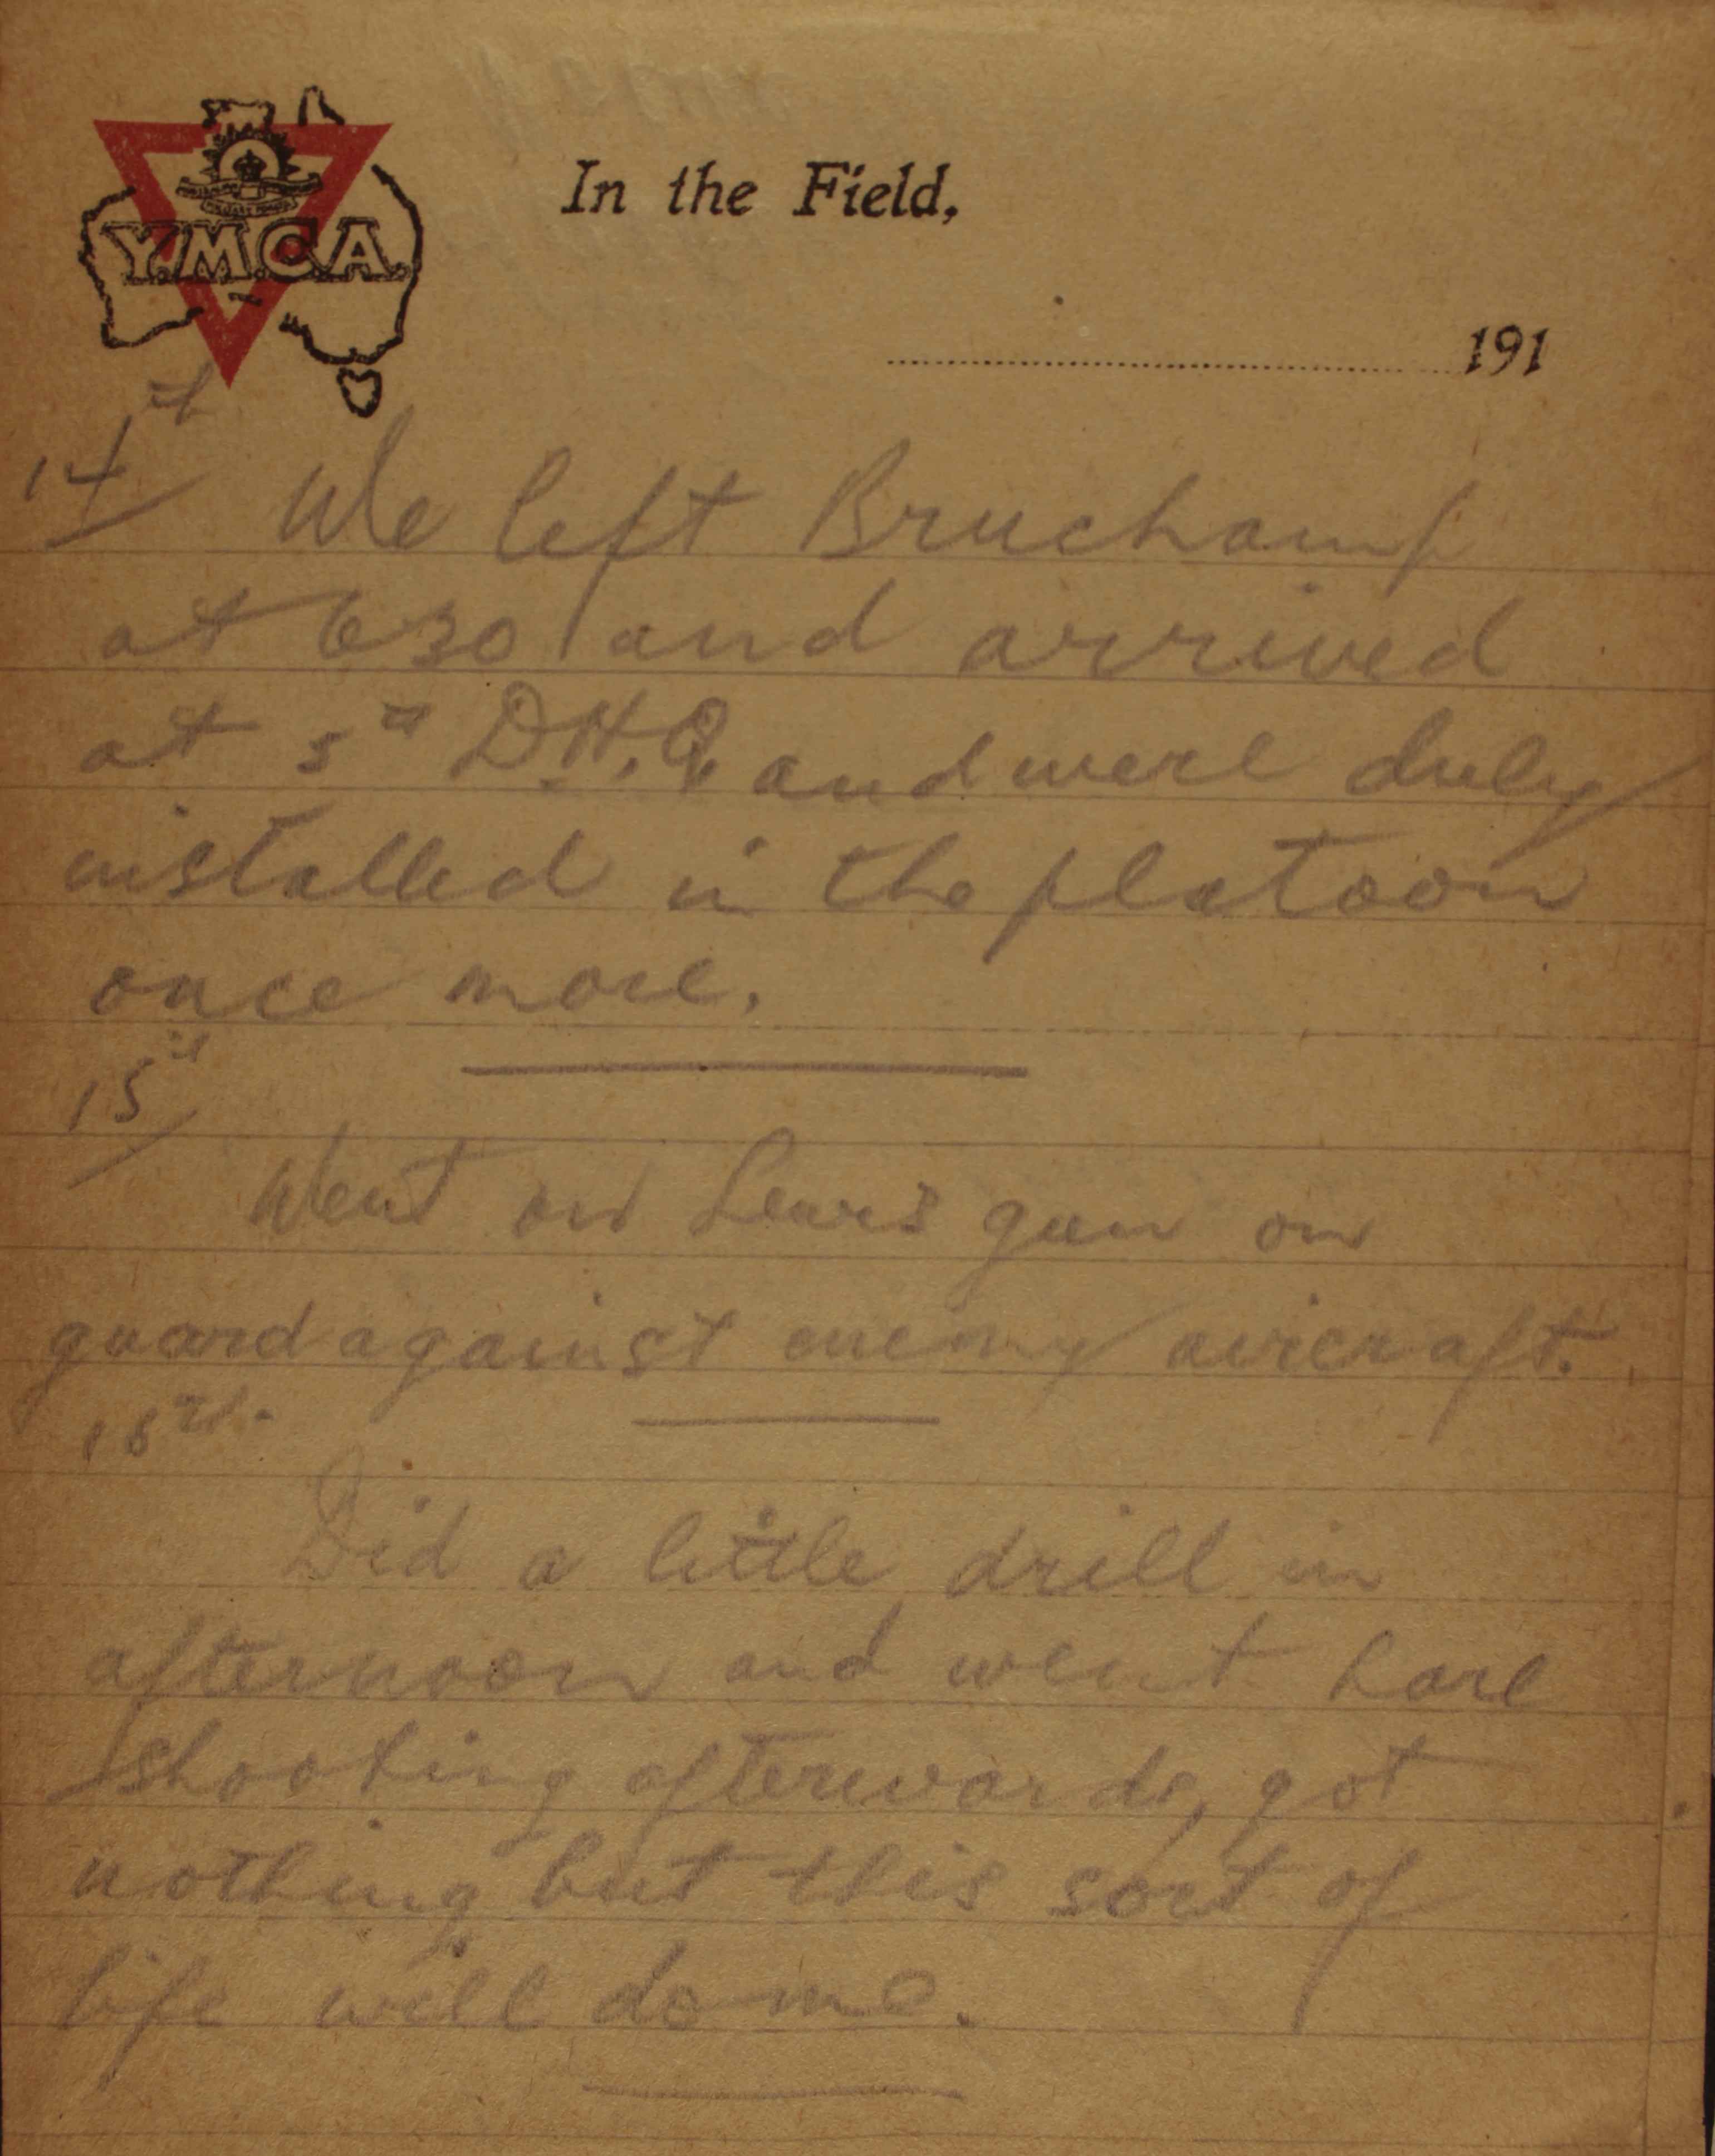 Y.M.C.A.
In the Field,
191
14th/ We left Bruchamp
at 630 and arrived
at 5th D.H.Q. and were duly
installed in the platoon
once more.
15th/
Went on Lewis gun on
guard against enemy aircraft.
16th.
Did a little drill in
afternoon and went hare
shooting afterwards, got
nothing but this sort of
life will do me.